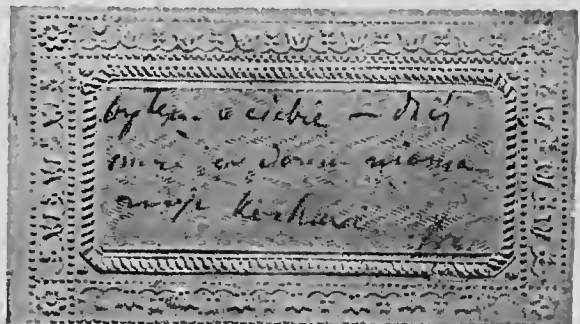 byłem u ciebie — dziś
mnie w domu niema
moja kochana